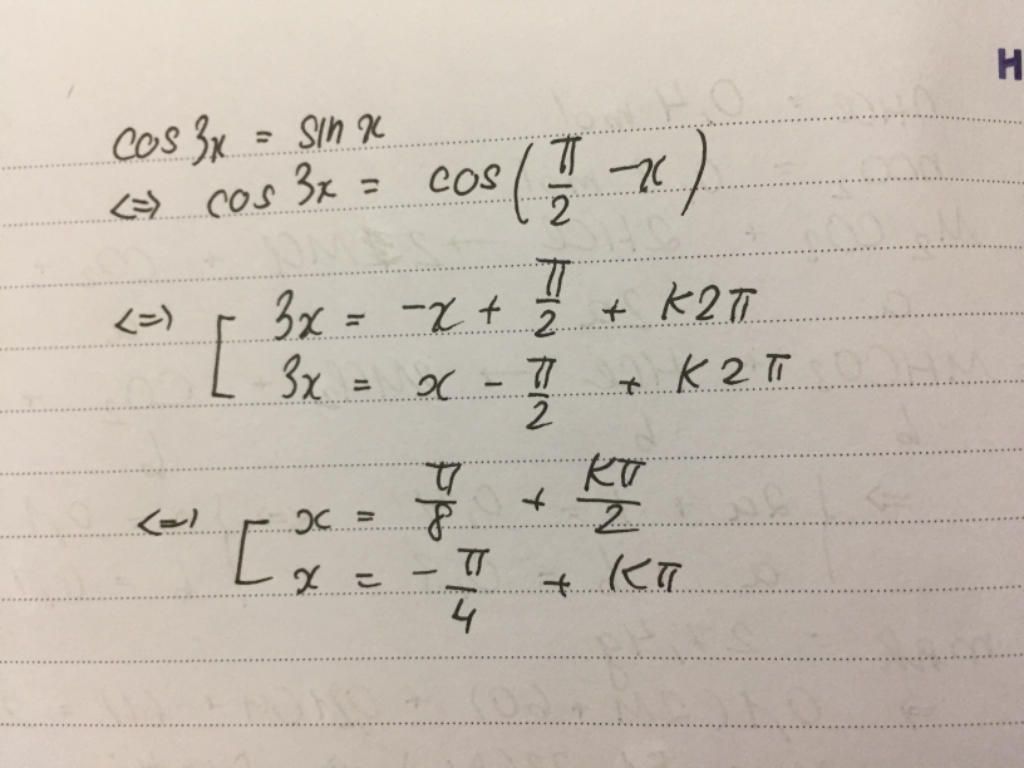 H
cos 3x = sin x
<=> cos 3x = cos(π/2 - x)
<=> [ 3x = -x + π/2 + K2π
3x = x - π/2 + K2π
<=> [ x = π/8 + Kπ/2
x = -π/4 + Kπ